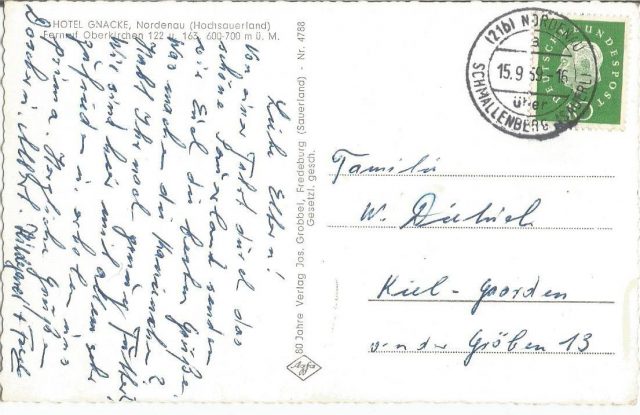 HOTEL GNACKE, Nordenau (Hochsauerland)
Fernruf Oberkirchen 122 u. 163, 600-700 m ü. M.
Liebe Eltern!
Von einer Fahrt durch das
schöne Sauerland senden
wir Euch die besten Grüße.
Was machen die Kaninchen?
Habt Ihr noch genug Futter?
Wir sind hier mit allem sehr
zufrieden u. erholen uns
prima. Herzliche Grüße
Hildegard + Fred
80 Jahre Verlag Jos. Grobbel, Fredeburg (Sauerland) - Nr. 4788
Gesetzl. gesch.
Agfa
(21b) NORDENAU
a
15.9.59-16
über
SCHMALLENBERG
DEUTSCHE BUNDESPOST
Familie
W.
Kiel-Gaarden
an der Gröben 13